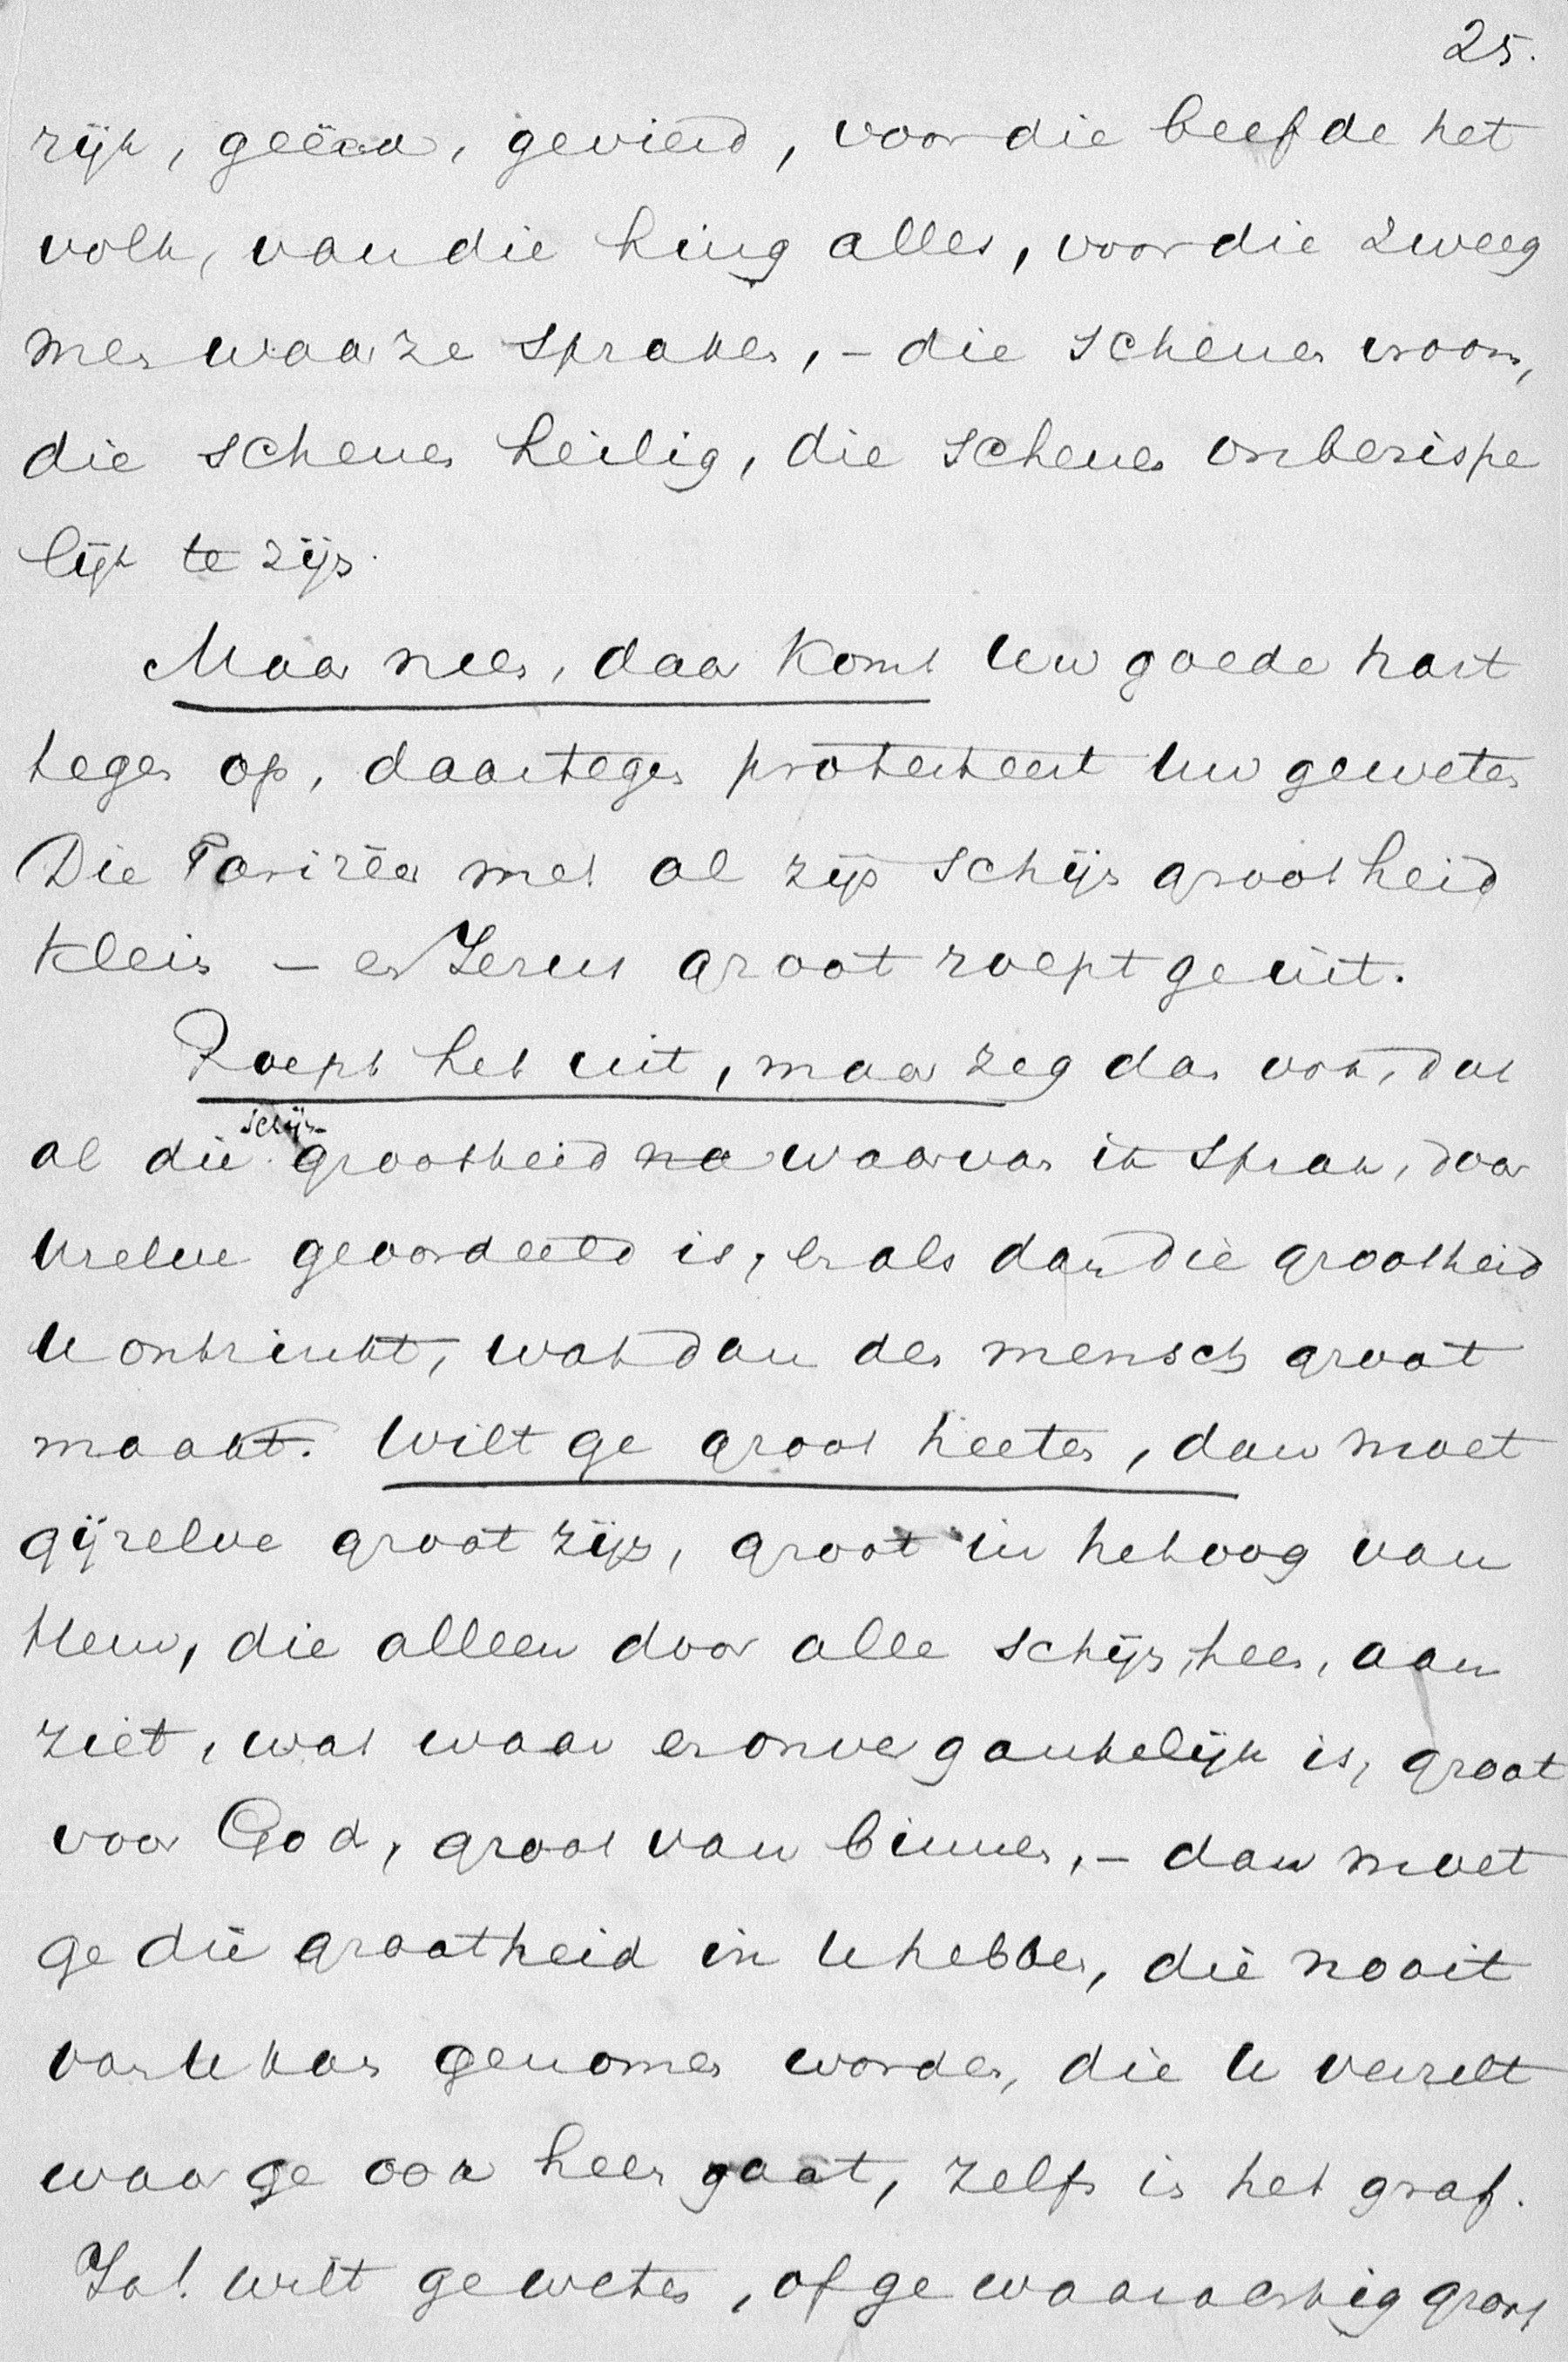 25.
rijk, geëerd, gevierd, voor die beefde het
volk, van die hing alles, voor die zweeg
men waar ze spraken, – die schenen vroom,
die schenen heilig, die schenen onberispe
lijk te zijn.
Maar neen, daar komt Uw goede hart
tegen op, daartegen protesteert Uw geweten
Die Farizëer met al zijn schijn grootheid
klein – en Jezus groot roept ge uit.
Roept het uit, maar zeg dan ook, dat
al die schijn-grootheid waarvan ik sprak, door
Uzelve geoordeeld is, en als dan die grootheid
U ontzinkt, wat dan den mensch groot
maakt. Wilt ge groot heeten, dan moet
gijzelve groot zijn, groot in het oog van
Hem, die alleen door alle schijn heen, aan
ziet, wat waar en onvergankelijk is, groot
voor God, groot van binnen, – dan moet
ge die grootheid in U hebben, die nooit
van U kan genomen worden, die U verzelt
waar ge ook heen gaat, zelfs in het graf.
Ja! wilt ge weten, of ge waarachtig groot